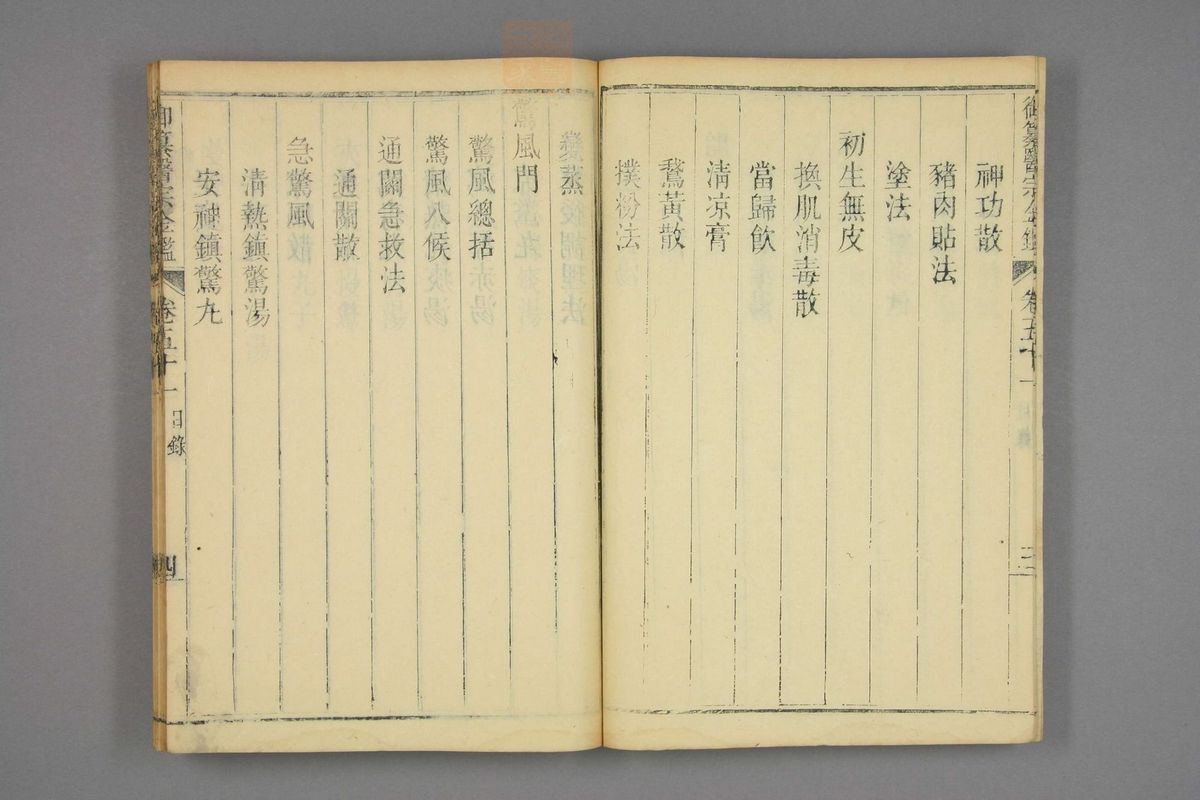 御纂醫宗金鑑 卷五十一
神功散
豬肉貼法
塗法
初生無皮
換肌消毒散
當歸飲
清凉膏
鵞黃散
撲粉法
變蒸
驚風門
驚風總括
驚風八候
通關急救法
通關散
急驚風
清熱鎮驚湯
安神鎮驚丸
御纂醫宗金鑑 卷五十一 目錄 四